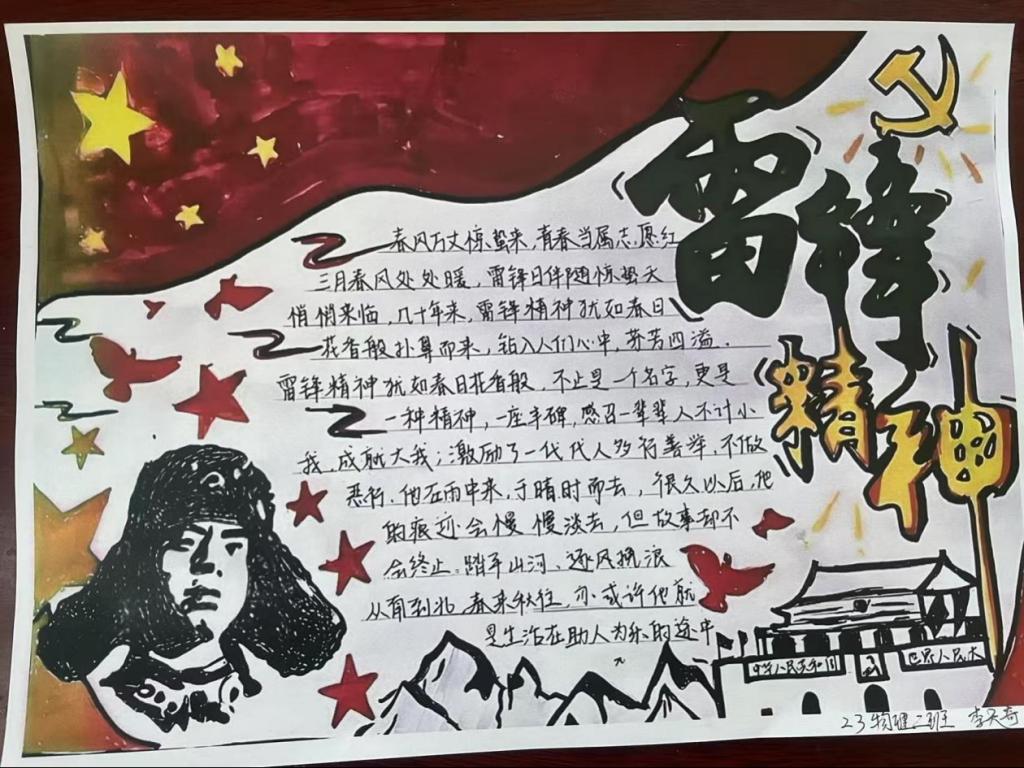 雷锋
精神
春风万丈惊蛰来,青春当属志愿红
三月春风处处暖,雷锋日伴随惊蛰天
悄悄来临,几十年来,雷锋精神犹如春日
花香般扑鼻而来,钻入人们心中,芬芳四溢.
雷锋精神犹如春日花香般.不止是一个名字,更是
一种精神,一座丰碑,感召一辈辈人不计小
我,成就大我;激励了一代代人多行善举,不做
恶行.他在雨中来,于晴时而去,很久以后,他
的痕迹会慢慢淡去,但故事却不
会终止.踏平山河、逐风挽浪
从南到北,春来秋往,亦或许他就
是生活在助人为乐的途中
中华人民共和国
世界人民大
23物理二班 李天奇